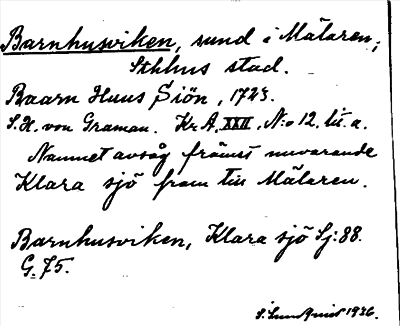 Barnhusviken, sund i Mälaren;
Sthlms stad.
Baarn Huus Siön, 1723.
S.H. von Graman. Kr.A. XXII. No 12. lit. a.
Namnet avsåg främst nuvarande
Klara sjö fram till Mälaren.
Barnhusviken, Klara sjö Sj: 88.
G. 75.
S. Lundquist 1936.